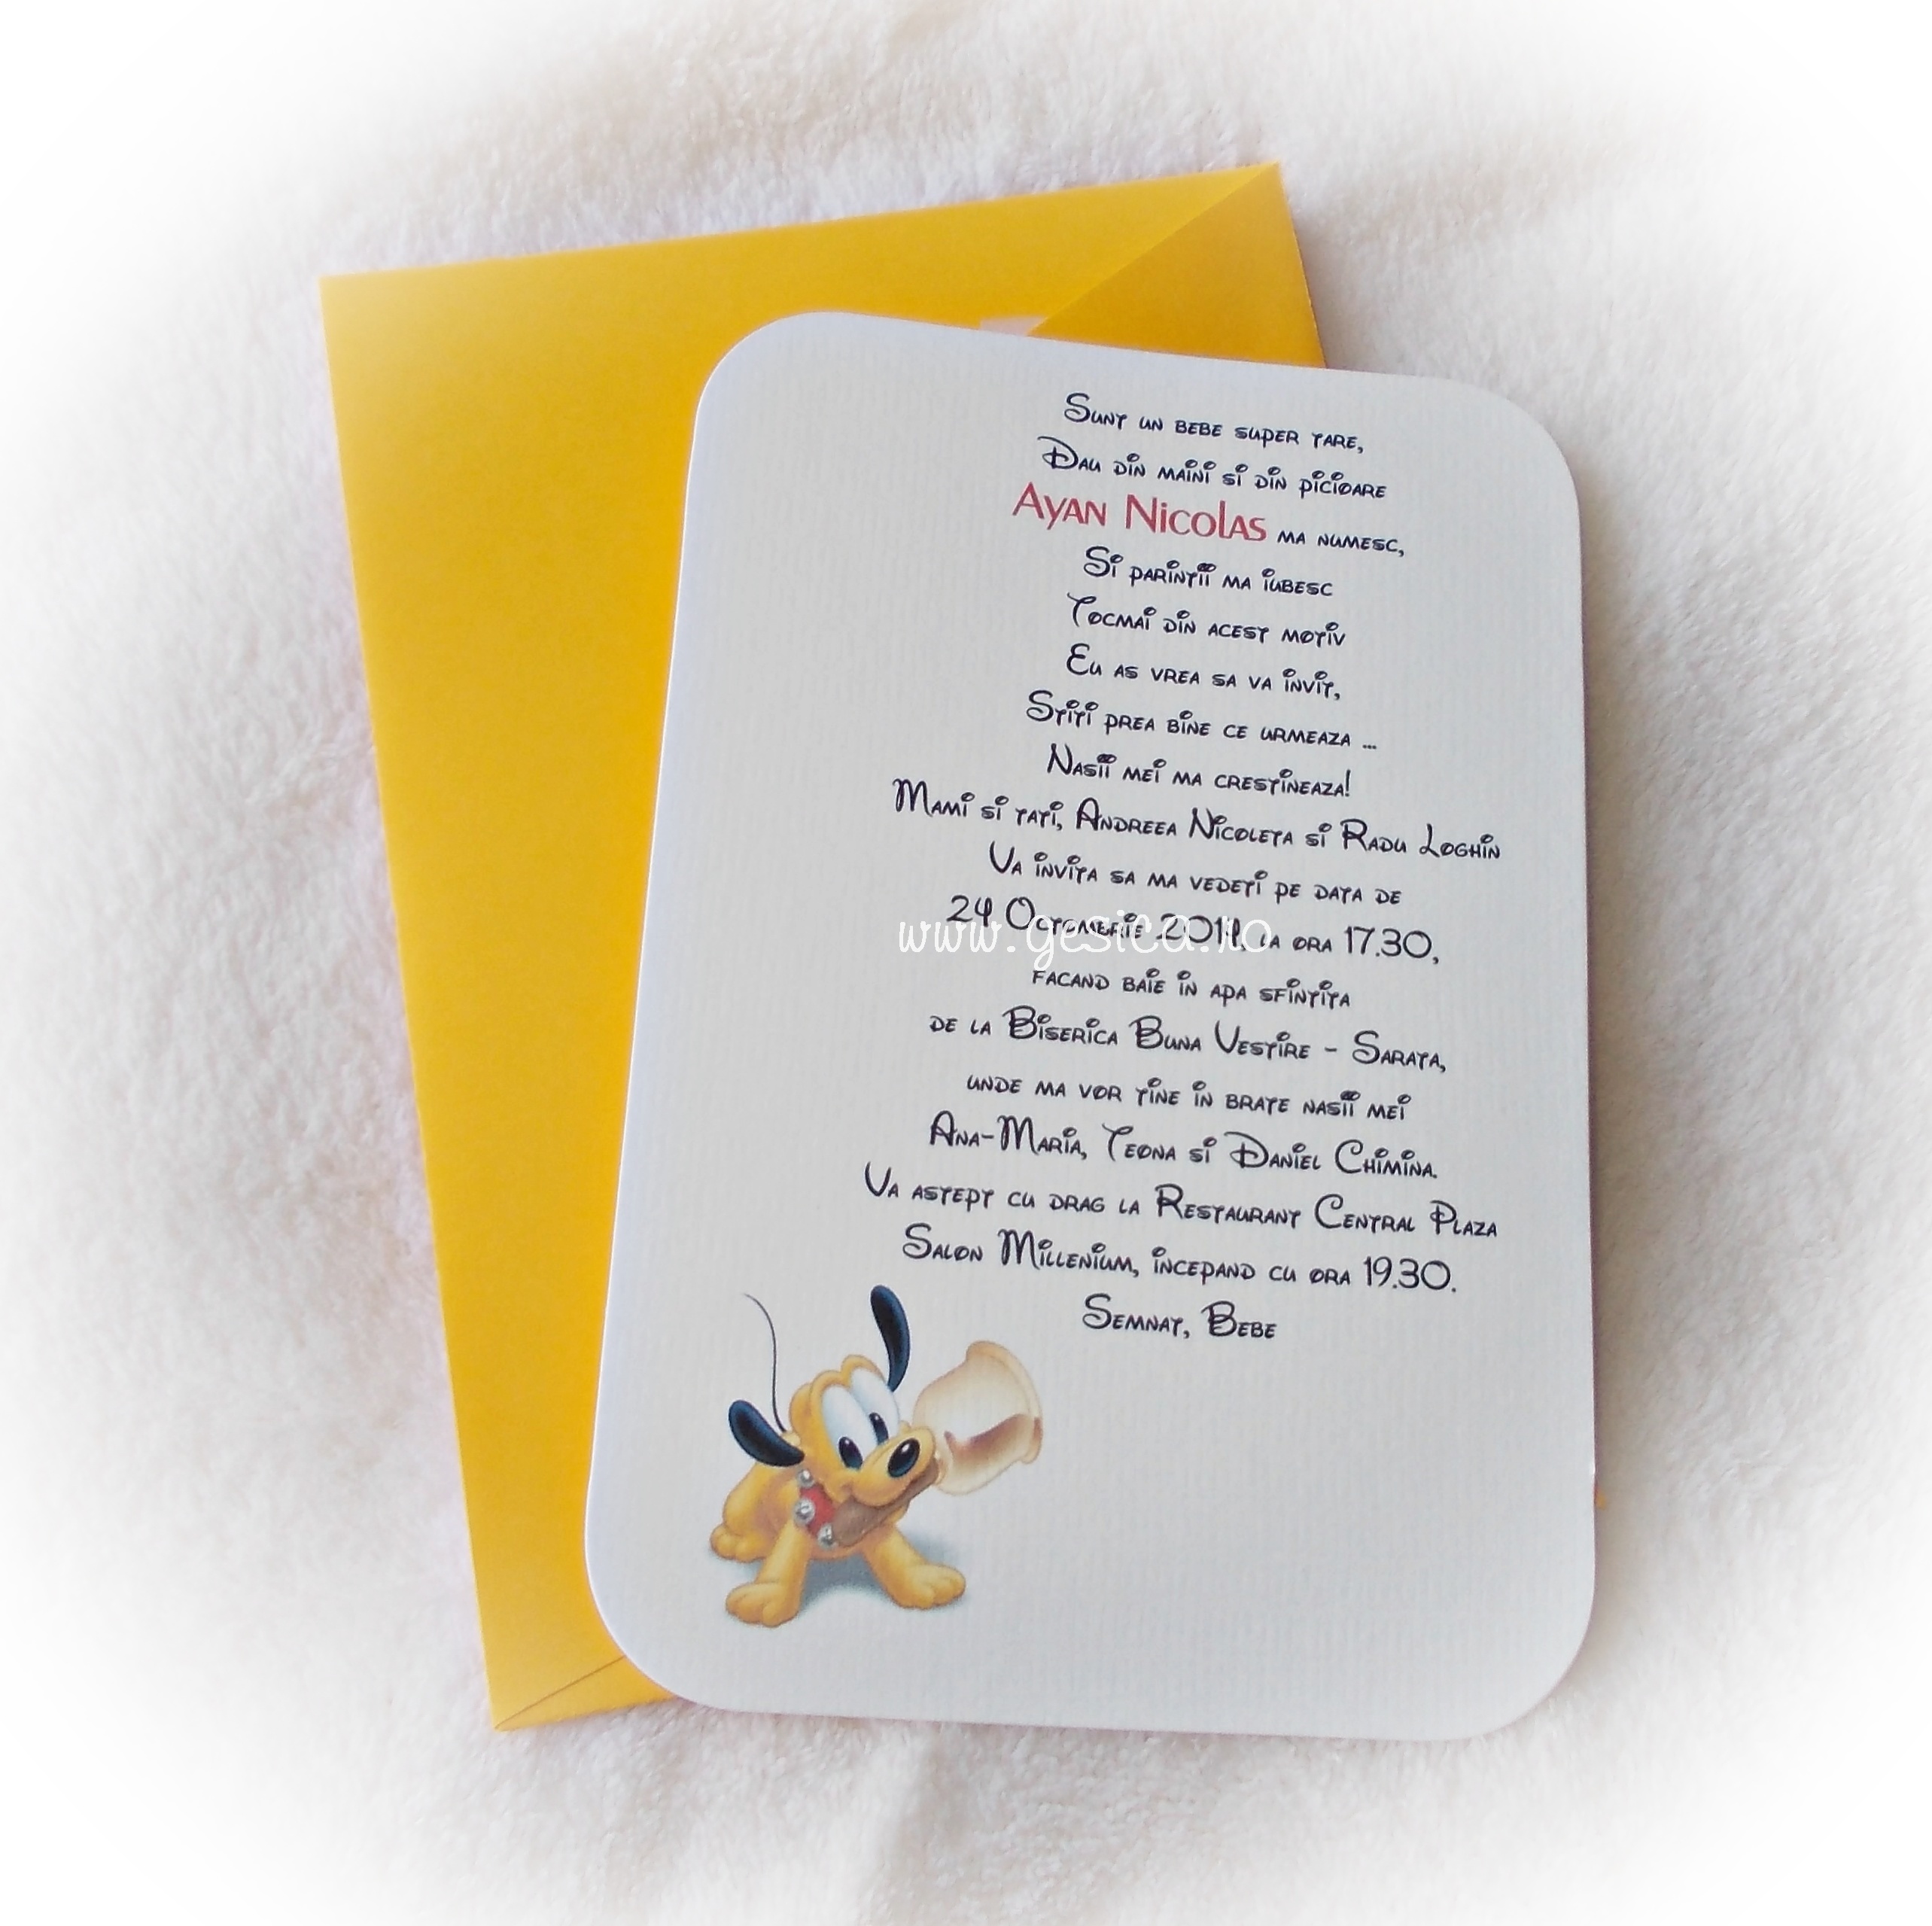 Sunt un bebe super tare,
Dau din maini si din picioare
Ayan Nicolas ma numesc,
Si parintii ma iubesc
Tocmai din acest motiv
Eu as vrea sa va invit,
Stiti prea bine ce urmeaza ...
Nasii mei ma crestineaza!
Mami si tati, Andreea Nicoleta si Radu Loghin
Va invita sa ma vedeti pe data de
24 Octombrie 2014, la ora 17.30,
www.gesica.ro
facand baie in apa sfintita
de la Biserica Buna Vestire - Sarata,
unde ma vor tine in brate nasii mei
Ana-Maria, Teona si Daniel Chimina.
Va astept cu drag la Restaurant Central Plaza
Salon Millenium, incepand cu ora 19.30.
Semnat, Bebe